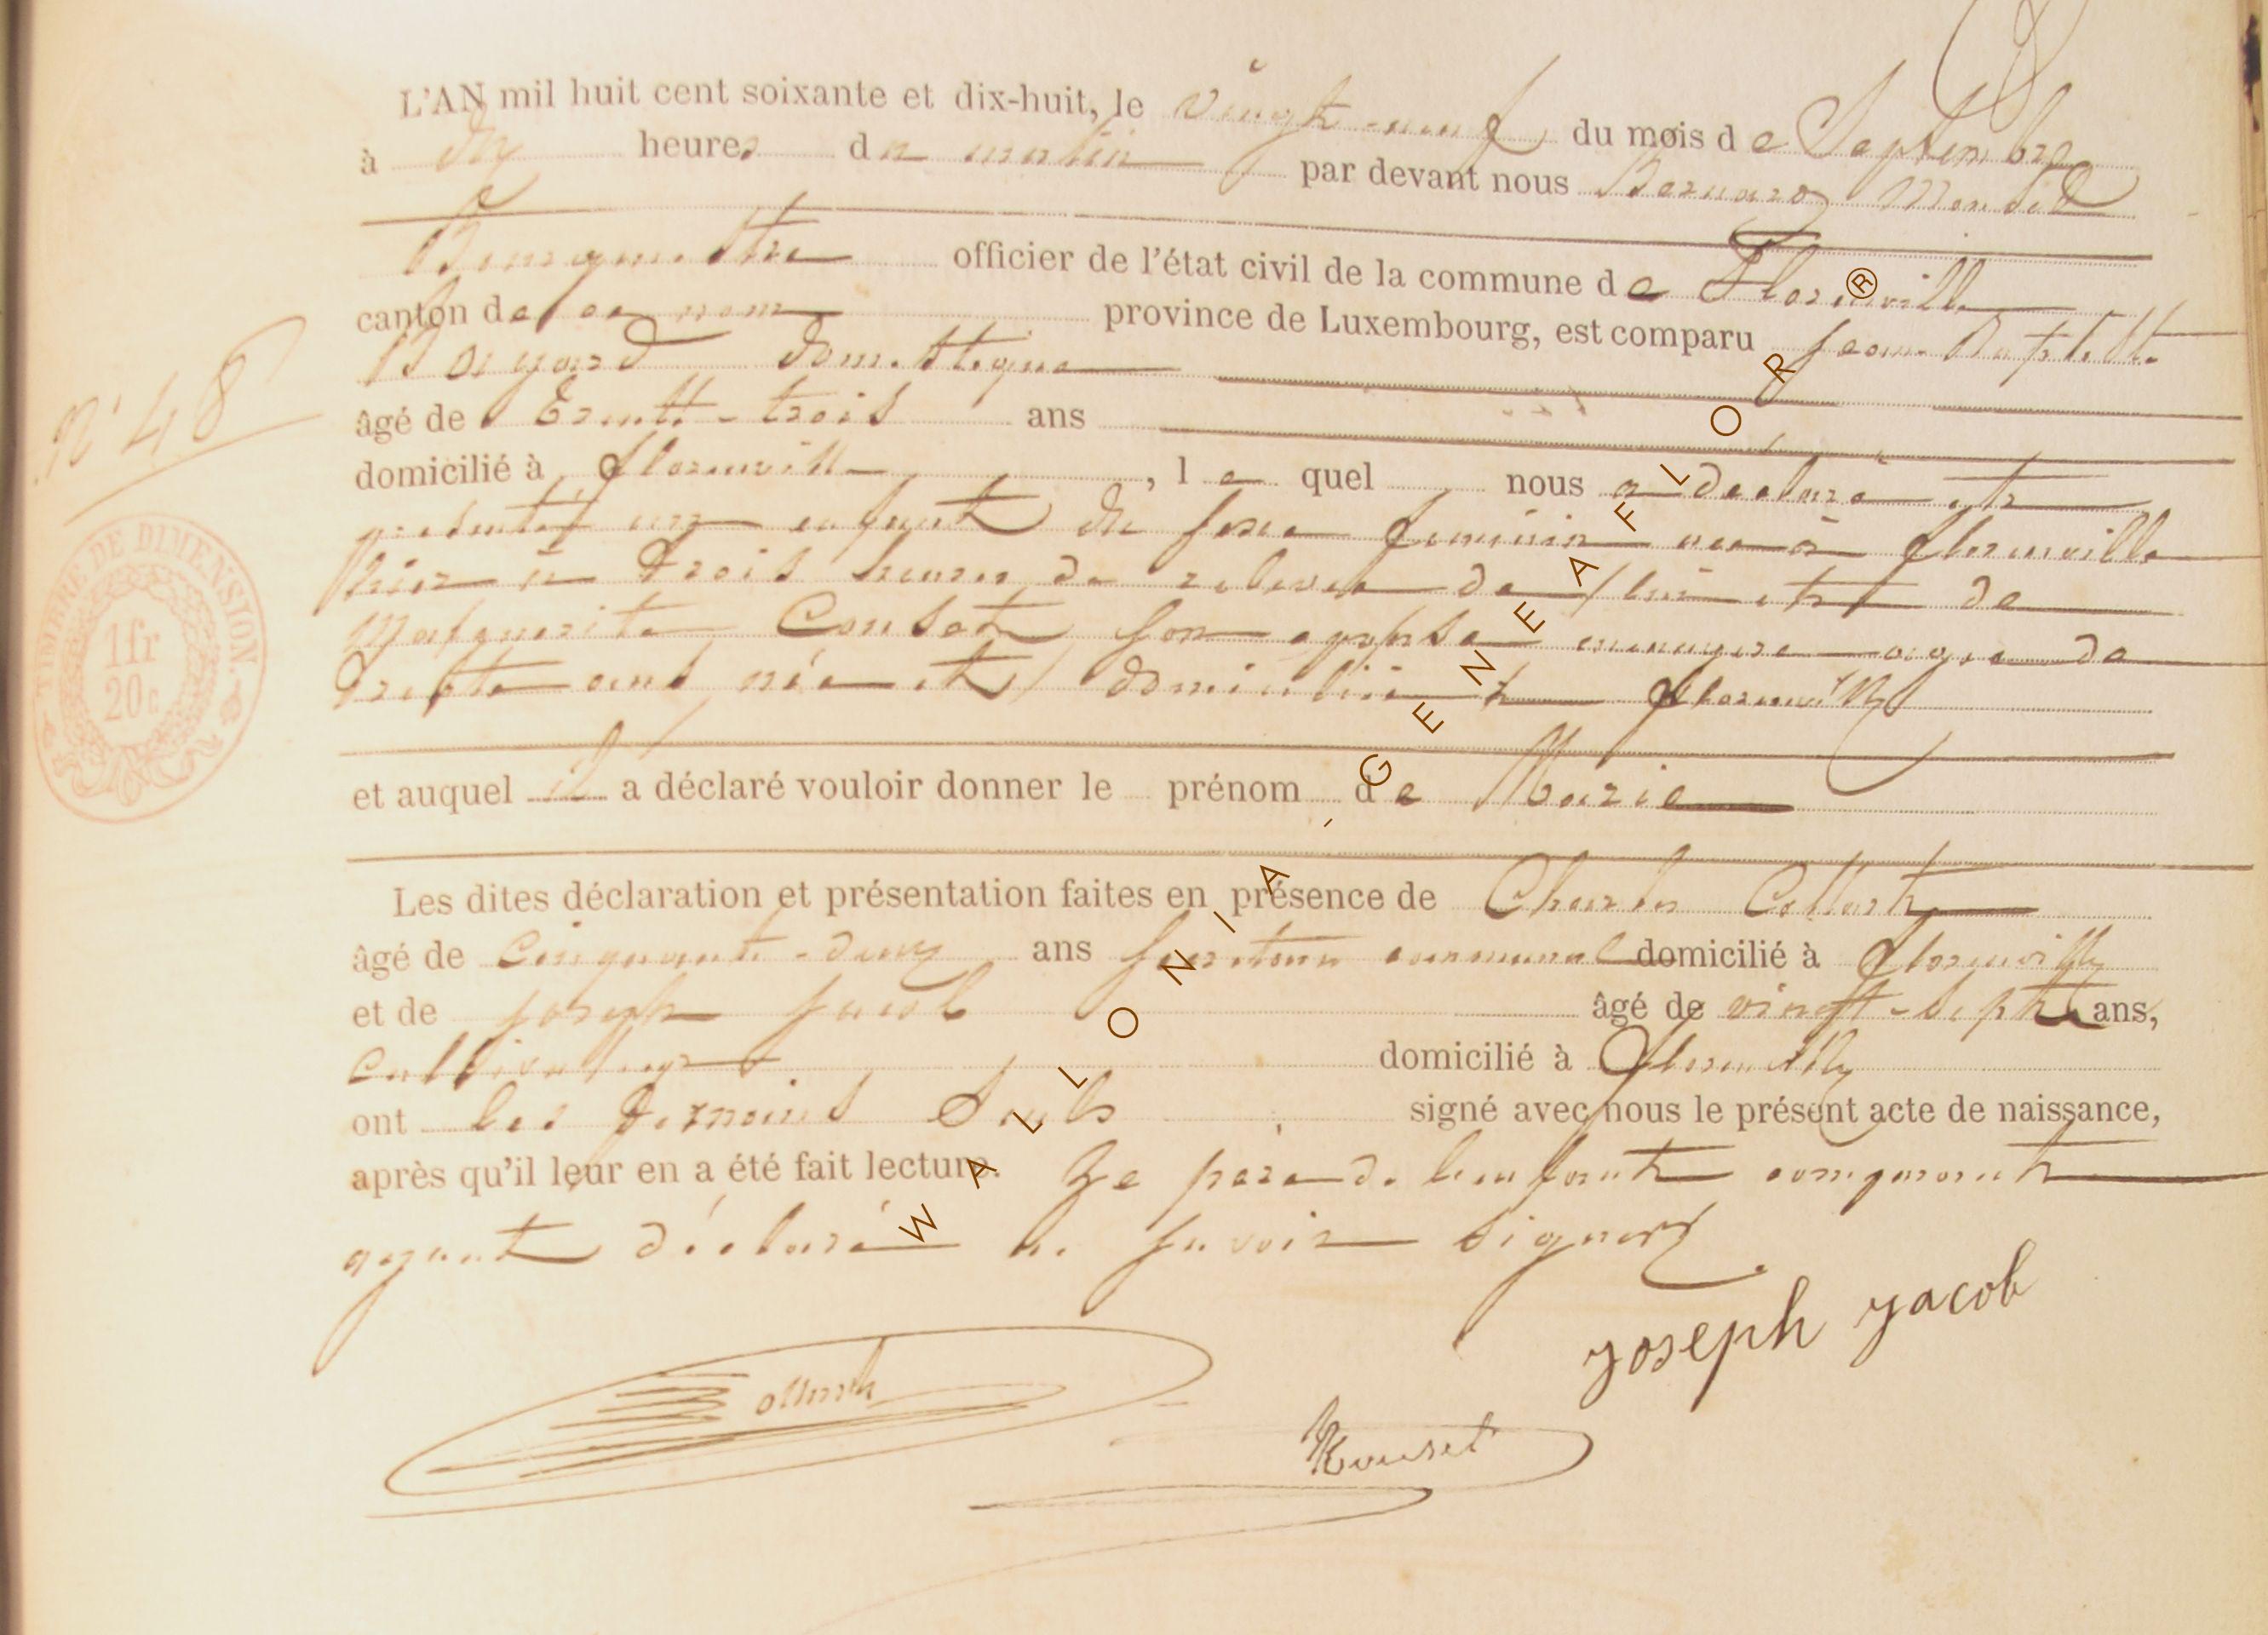 L'AN mil huit cent soixante et dix-huit, le vingt-neuf du mois de Septembre
à dix heures du matin par devant nous Bernard
Bourgmestre officier de l'état civil de la commune de Florenville
canton de ce nom province de Luxembourg, est comparu Jean Baptiste
Bayard domestique
N° 48
âgé de Trente-trois ans
domicilié à florenville, le quel nous a déclaré et
présenté un enfant du sexe feminin né à florenville
hier à trois heures de relevée de lui et de
Marguerite son epouse menagere agée de
Trente ans née et domiciliée à florenville
TIMBRE DE DIMENSION.
1 fr
20 c
et auquel il a déclaré vouloir donner le prénom de Marie
Les dites déclaration et présentation faites en présence de Charles Collart
âgé de Cinquante-deux ans communal domicilié à florenville
et de joseph jacob âgé de vingt-sept ans,
Cultivateur domicilié à florenville
ont les temoins seuls signé avec nous le présent acte de naissance,
après qu'il leur en a été fait lecture. Le père de l'enfant comparant
ayant déclaré ne savoir signer
joseph jacob
WALLONIA - GENEAFLOR ®